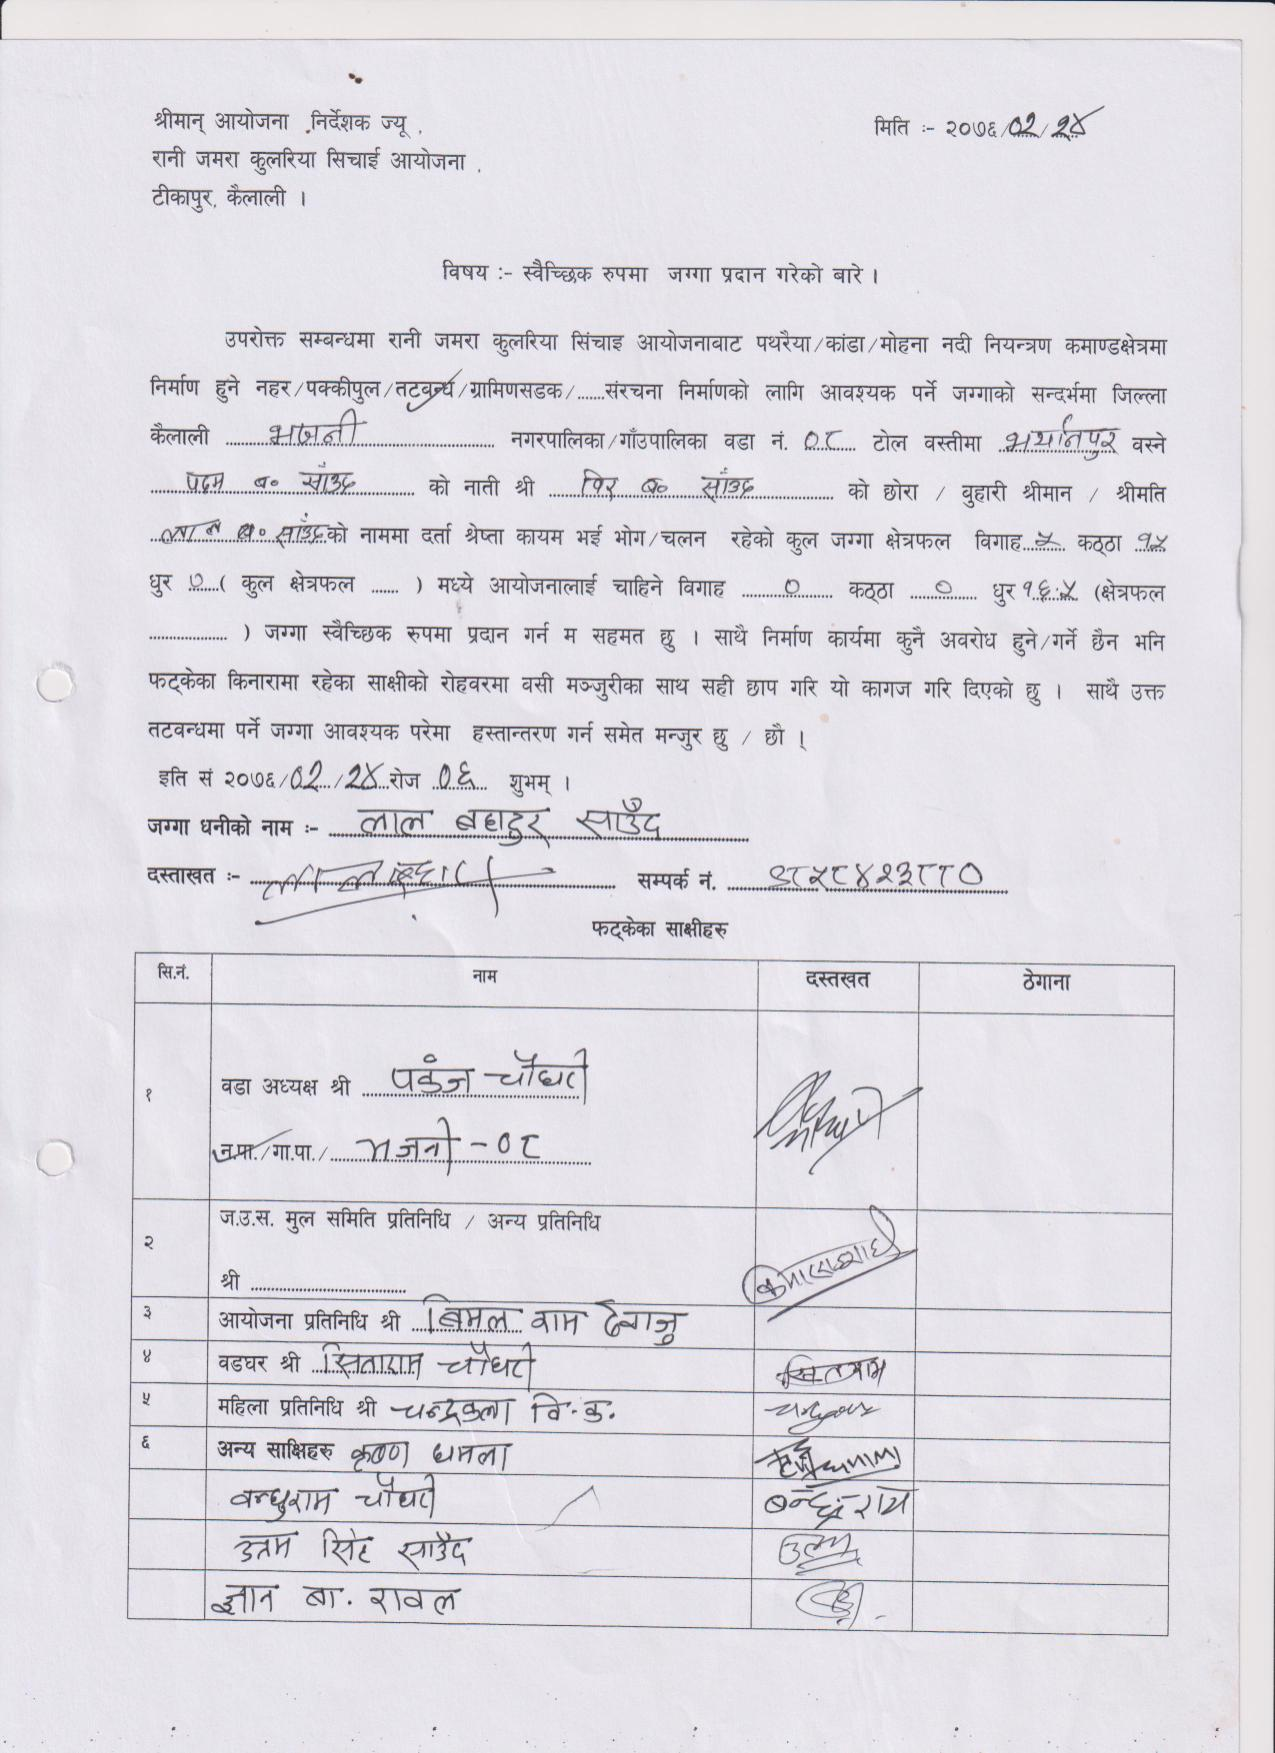 श्रीमान् आयोजना निर्देशक ज्यू ,
मिति :- २०७६/०२/२४
रानी जमरा कुलरिया सिचाई आयोजना ,
टीकापुर, कैलाली ।
विषय :- स्वैच्छिक रुपमा जग्गा प्रदान गरेको बारे ।
उपरोक्त सम्बन्धमा रानी जमरा कुलरिया सिंचाइ आयोजनाबाट पथरैया/कांडा/मोहना नदी नियन्त्रण कमाण्डक्षेत्रमा
निर्माण हुने नहर/पक्कीपुल/तटबन्ध/ग्रामिणसडक/......संरचना निर्माणको लागि आवश्यक पर्ने जग्गाको सन्दर्भमा जिल्ला
कैलाली भजनी नगरपालिका/गाँउपालिका वडा नं. ०८ टोल वस्तीमा वस्ने
पदम ब० साँउद को नाती श्री विर ब० साँउद को छोरा / वुहारी श्रीमान / श्रीमति
लाल ब० साँउद को नाममा दर्ता श्रेष्ता कायम भई भोग/चलन रहेको कुल जग्गा क्षेत्रफल विगाह कठ्ठा १५
धुर ७ ( कुल क्षेत्रफल ...... ) मध्ये आयोजनालाई चाहिने विगाह ० कठ्ठा ० धुर १६.५ (क्षेत्रफल
.................. ) जग्गा स्वैच्छिक रुपमा प्रदान गर्न म सहमत छु । साथै निर्माण कार्यमा कुनै अवरोध हुने/गर्ने छैन भनि
फट्केका किनारामा रहेका साक्षीको रोहवरमा वसी मञ्जुरीका साथ सही छाप गरि यो कागज गरि दिएको छु । साथै उक्त
तटवन्धमा पर्ने जग्गा आवश्यक परेमा हस्तान्तरण गर्न समेत मन्जुर छु / छौ ।
इति सं २०७६/०२/२४ रोज ०६ शुभम् ।
जग्गा धनीको नाम :- लाल बहादुर साउँद
दस्ताखत :- लालबहादुर सम्पर्क नं. ९८५८४२३८८०
फट्केका साक्षीहरु
सि.नं. नाम दस्तखत ठेगाना
१ वडा अध्यक्ष श्री पकंज चौधरी
न.पा./गा.पा./ भजनी - ०८
२ ज.उ.स. मुल समिति प्रतिनिधि / अन्य प्रतिनिधि
श्री ..................................
३ आयोजना प्रतिनिधि श्री बिमल राम देवाजु
४ वडघर श्री सिताराम चौधरी सिताराम
५ महिला प्रतिनिधि श्री चन्द्रकला वि.क.
६ अन्य साक्षिहरु कृष्ण धमला
बन्धुराम चौधरी
उत्तम सिंह साउँद
ज्ञान बा. रावल